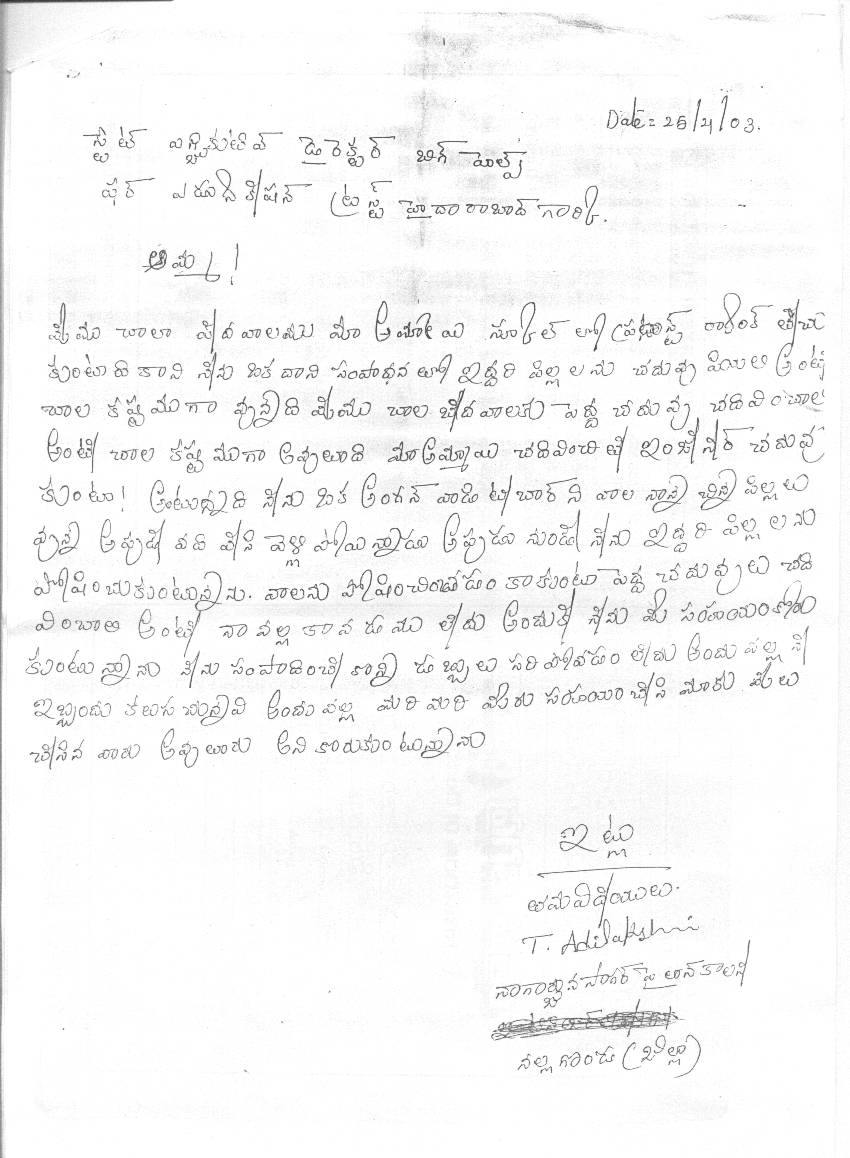 Date = 25/4/03.
స్టేట్ ఎగ్జికుటివ్ డైరెక్టర్ బిగ్ హెల్ప్
ఫర్ ఎడ్యుకేషన్ ట్రస్ట్ హైదారాబాద్ గారికి.
అమ్మ!
మేము చాలా పేదవాలము మా అమ్మాయి స్కూల్ లో ఫస్టు ర్యాంక్ తెచు
కుంటుంది కాని నేను ఒకదాని సంపాధన తో ఇద్దరి పిల్లలను చదువు అంటే
చాల కష్టముగా వున్నది మేము చాల బీదవాలకు పెద్ద చదువు చదివించాల
అంటే చాల కష్టముగా అవులుది మా అమ్మాయి చదివించితే ఇంజనీర్ చదువు
కుంటు! అంటున్నది నేను ఒక అంగన్ వాడి టీచార్ ని వాల నాన్న చిన్న పిల్లలు
వున్న అపుడే వెళ్లి పోయిన్నాడు అపుడు నుండి నేను ఇద్దరి పిల్లలను
పోషించుకుంటున్నాను. వాలను పోషించడం కాకుంటు పెద్ద చదువులు చది
వించాలి అంటే నా వల్ల కావడము లేదు అందుకే నేను మీ సంహయం కోరు
కుంటున్నాను నేను సంపాదించే కొన్ని డబ్బులు సరిపోవడం లేదు అందు వల్ల నే
ఇబ్బందు కలుసుచున్నవి అందు వల్ల మరి మరి మీరు సంహయం చేసి మాకు మేలు
చేసిన వారు అవులురు అని కొరుకుంటున్నాను
ఇట్లు
T. Adilakshmi
నాగార్జున సాగర్ పైలాన్ కాలని
నల్లగొండ (జిల్లా)